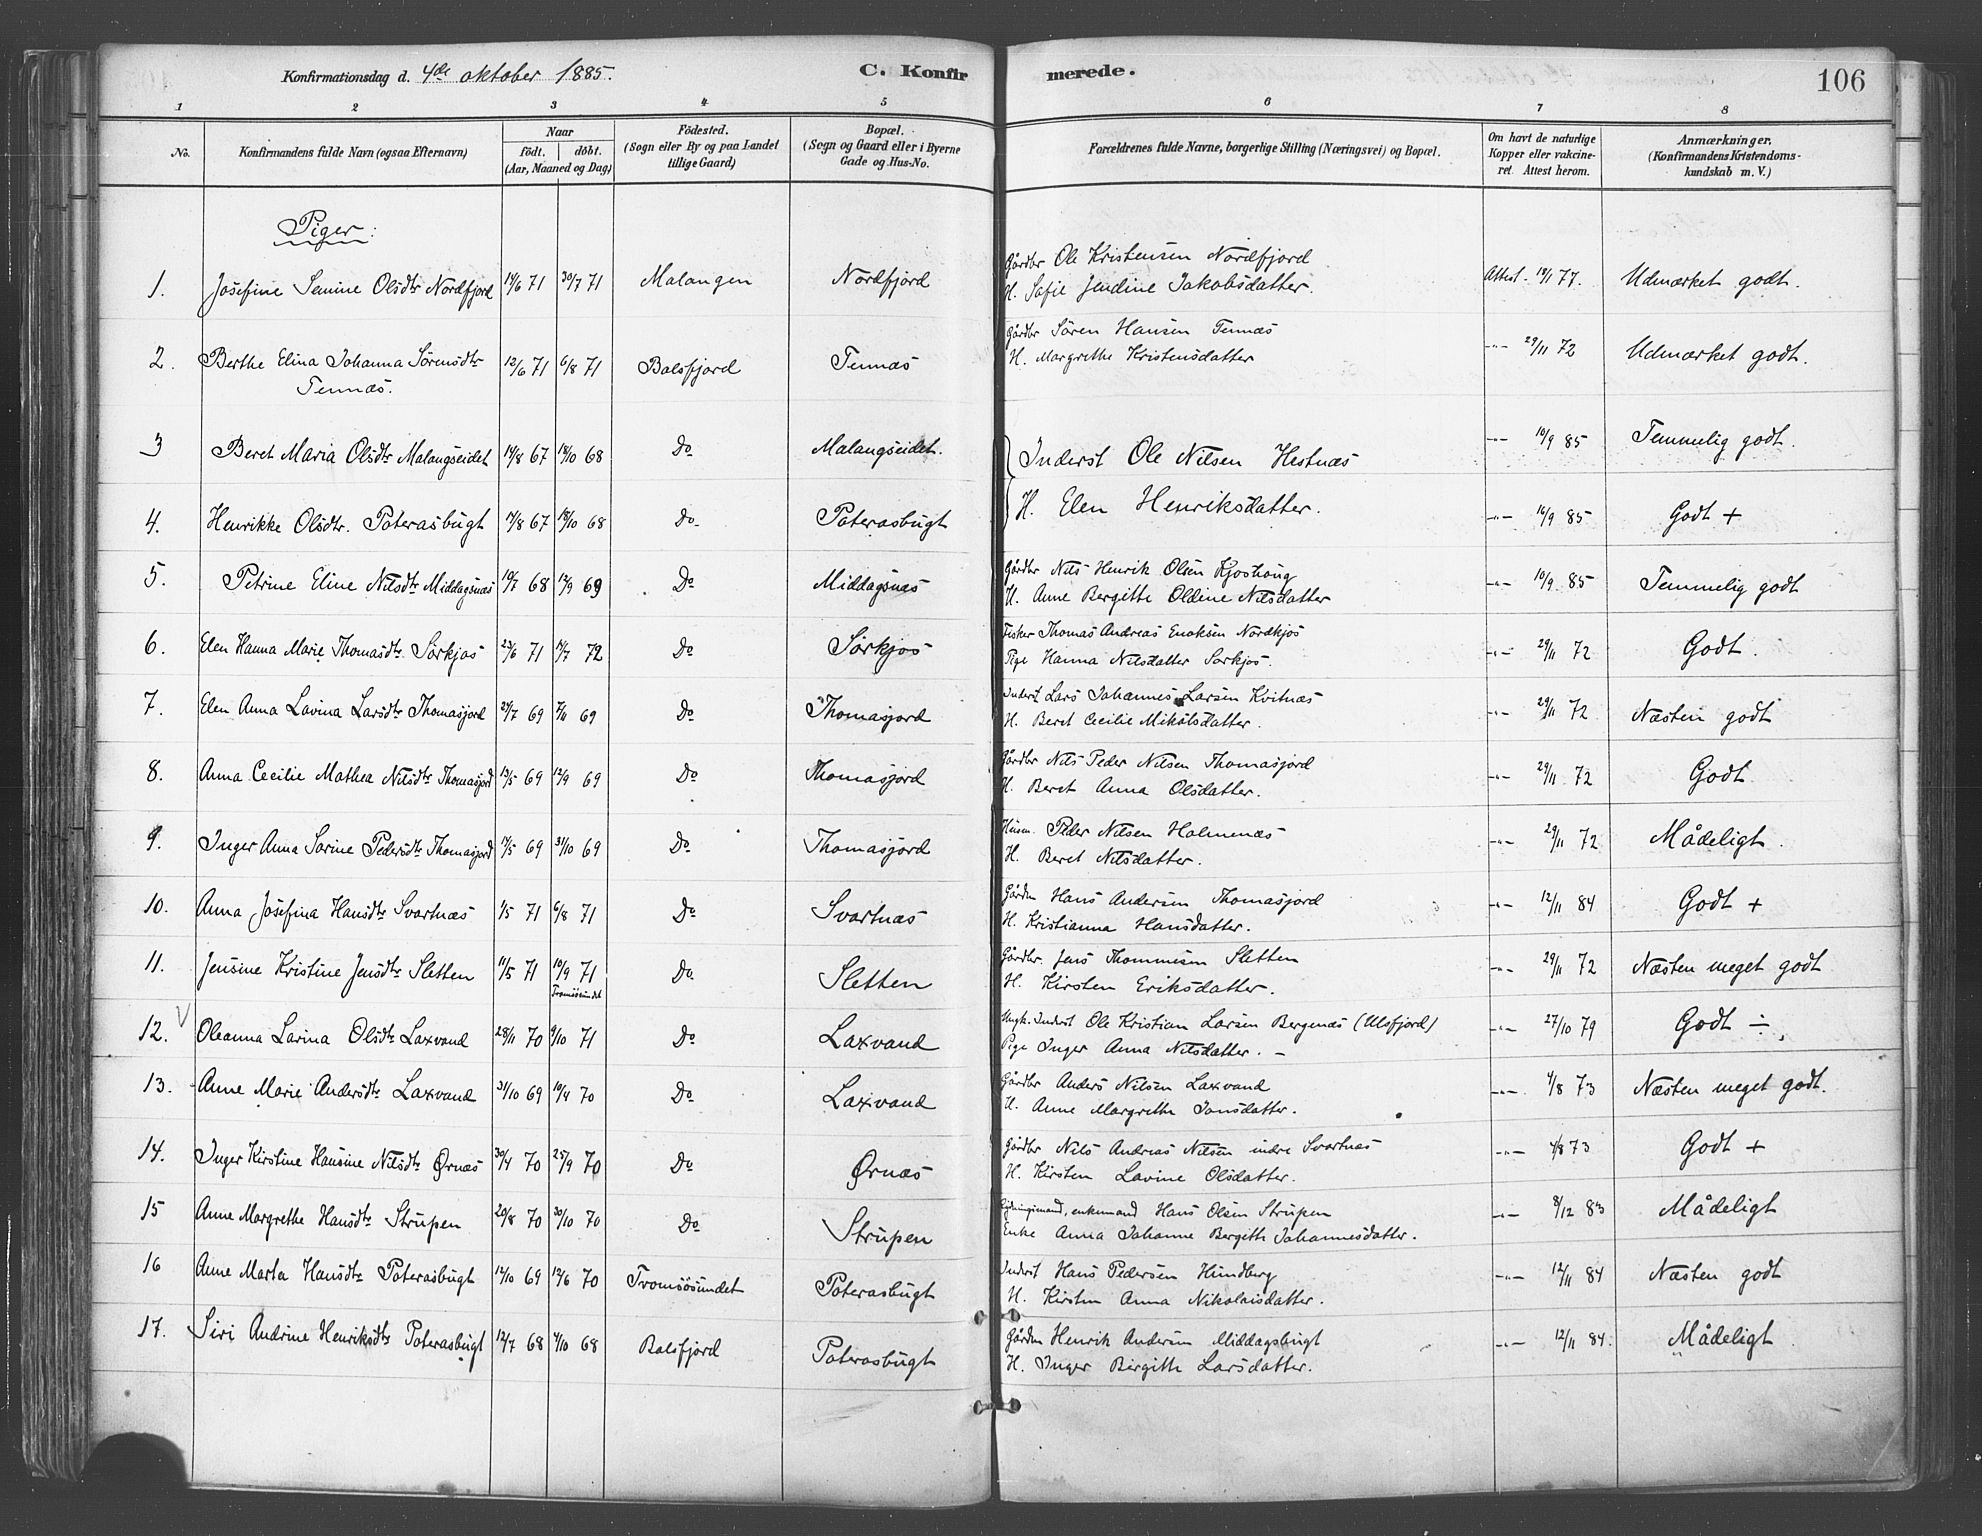 Konfirmationsdag d. 4de oktober 1885.
C. Konfirmerede.
106
1 2 3 4 5 6 7 8
No.
Konfirmandens fulde Navn (ogsaa Efternavn)
Naar
födt. döbt.
(Aar, Maaned og Dag)
Födested.
(Sogn eller By og paa Landet
tillige Gaard)
Bopæl.
(Sogn og Gaard eller i Byerne
Gade og Hus-No.
Forældrenes fulde Navne, borgerlige Stilling (Næringsvei) og Bopæl.
Om havt de naturlige
Kopper eller vakcine-
ret. Attest herom.
Anmærkninger.
(Konfirmandens Kristendoms-
kundskab m. V.)
Piger:
1. Josefine Semine Olsdtr Nordfjord 14/6 71 30/7 71 Malangen Nordfjord Gårdbr Ole Kristensen Nordfjord Attest. 19/11 77. Udmærket godt.
H. Sofie Jendine Jakobsdatter.
2. Berthe Elina Johanna Sörensdtr 12/6 71 6/8 71 Balsfjord Tennæs Gårdbr Sören Hansen Tennæs -"- 29/11 72 Udmærket godt.
Tennæs. H. Margrethe Kristensdatter
3 Beret Maria Olsdtr Malangseidet 14/8 67 18/10 68 Do Malangseidet. Inderst Ole Nilsen Hestnæs -"- 16/9 85 Temmelig godt.
4. Henrikke Olsdtr. Poterasbugt 14/8 67 18/10 68 Do Poterasbugt H. Elen Henriksdatter. -"- 16/9 85 Godt +
5. Petrine Eline Nilsdtr Middagsnæs 10/7 68 12/9 69 Do Middagsnæs Gårdbr Nils Henrik Olsen Kjoshaug -"- 10/9 85 Temmelig godt
H. Anne Bergitte Oldine Nilsdatter
6. Elen Hanna Marie Thomasdtr Sörkjos 23/6 71 14/7 72 Do Sörkjos Fisker Thomas Andreas Enoksen Nordkjos -"- 29/11 72 Godt.
Pige Hanna Nilsdatter Sorkjos.
7. Elen Anna Lavina Larsdtr Thomasjord 29/7 69 69 Do Thomasjord Inderst Lars Johannes Larsen Kvitnæs -"- 29/11 72 Næsten godt
H. Beret Cecilie Mikalsdatter.
8. Anna Cecilie Mathea Nilsdtr Thomasjord 13/5 69 12/9 69 Do Thomasjord Gårdbr Nils Peder Nilsen Thomasjord -"- 29/11 72 Godt
H. Beret Anna Olsdatter.
9. Inger Anna Sarine Pedersdtr Thomasjord 14/5 69 31/10 69 Do Thomasjord Husm. Peder Nilsen Holmenæs -"- 29/11 72 Mådeligt.
H. Beret Nilsdatter.
10. Anna Josefina Hansdtr Svartnæs 1/5 71 6/8 71 Do Svartnæs Gårdm Hans Andersen Thomasjord -"- 12/11 84 Godt +
H. Kristianna Hansdatter.
11. Jensine Kristine Jensdtr Sletten 11/5 71 10/9 71 Do Sletten Gårdbr. Jens Thommesen Sletten -"- 29/11 72 Næsten meget godt
Tromsösundet H. Kirsten Eriksdatter.
12. Oleanna Larina Olsdtr Laxvand 28/11 70 9/10 71 Do Laxvand Ungk. Inderst Ole Kristian Larsen Bergenæs (Ulsfjord) -"- 27/10 79 Godt ÷.
Pige Inger Anna Nilsdatter. -
13. Anne Marie Andersdtr Laxvand 31/10 69 10/4 70 Do Laxvand Gårdbr Anders Nilsen Laxvand -"- 4/8 73 Næsten meget godt.
H. Anne Margrethe Jonsdatter.
14. Inger Kirstine Hansine Nilsdtr Ørnæs 30/4 70 25/9 70 Do Ørnæs Gårdbr Nils Andreas Nilsen indre Svartnæs -"- 4/8 73 Godt +
H. Kirsten Lavine Olsdatter.
15 Anne Margrethe Hansdtr Strupen 20/8 70 30/10 70 Do Strupen enkemand Hans Olsen Strupen -"- 8/12 83 Mådeligt
Enke Anna Johanne Bergitte Johannesdatter.
16 Anne Marta Hansdtr Poterasbugt 12/10 69 12/6 70 Tromsösundet Poterasbugt Inderst Hans Pedersen Hundberg -"- 12/11 84 Næsten godt
H. Kirsten Anna Nikolaisdatter.
17. Siri Andrine Henriksdtr Poterasbugt 12/7 68 4/10 68 Balsfjord Poterasbugt Gårdm Henrik Andersen Middagsbugt -"- 12/11 84. Mådeligt
H. Inger Birgitte Larsdatter.